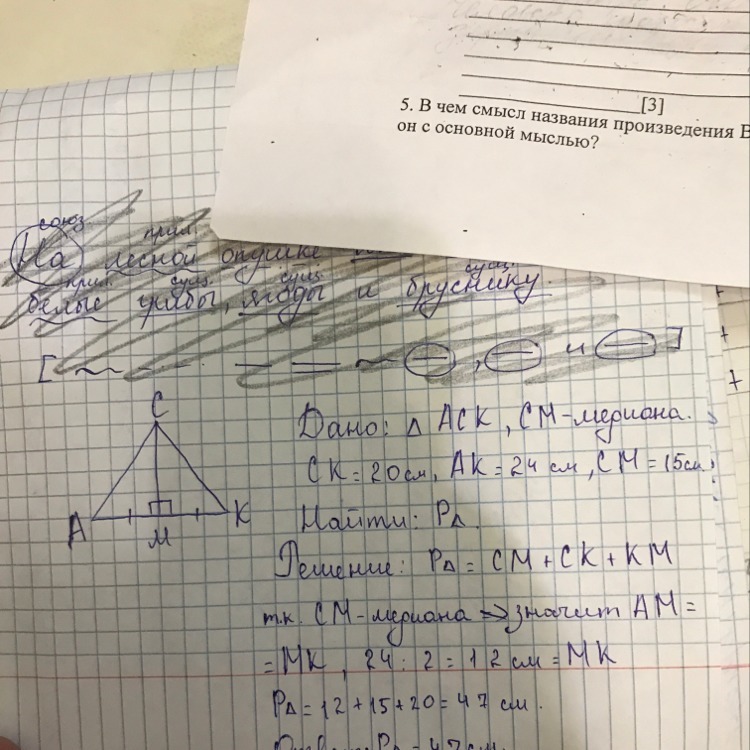 [3]
5. В чем смысл названия произведения В
он с основной мыслью?
союз. прил.
На лесной опушке
прил. сущ. сущ. сущ.
белые грибы, ягоды и бруснику.
[ , и ]
C
A M K
Дано: △ ACK, CM-мериана.
CK = 20 см, AK = 24 см, CM = 15 см.
Найти: P△.
Решение: P△ = CM + CK + KM
т.к. CM-мериана => значит AM =
= MK, 24 : 2 = 12 см = MK
P△ = 12 + 15 + 20 = 47 см.
Ответ: P△ = 47 см.